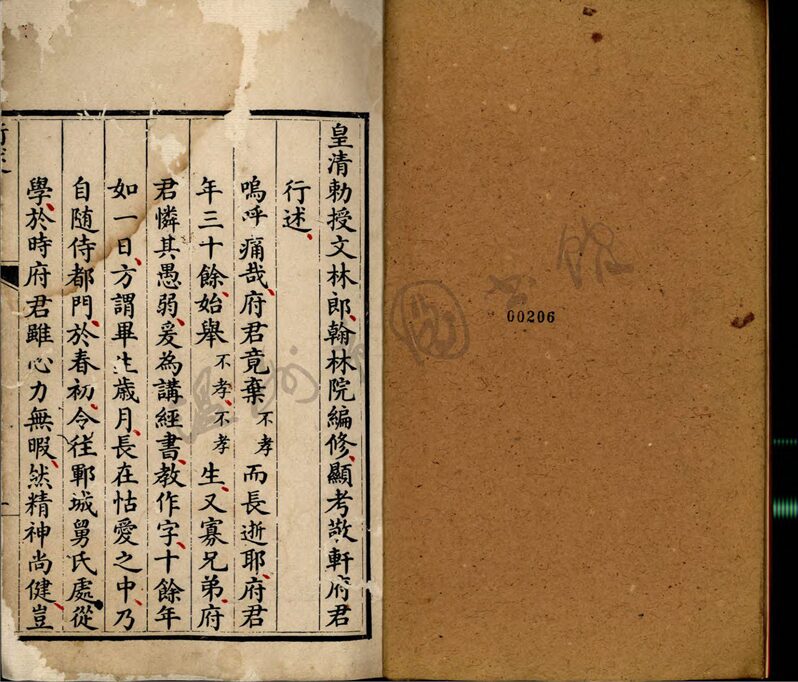 00206
皇清勅授文林郎翰林院編修顯考敬軒府君
行述
嗚呼痛哉府君竟棄不孝而長逝耶府君
年三十餘始舉不孝不孝生又寡兄弟府
君憐其愚弱爰為講經書教作字十餘年
如一日方謂畢生歲月長在怙愛之中乃
自隨侍都門於春初令往鄆城舅氏處從
學於時府君雖心力無暇然精神尚健豈